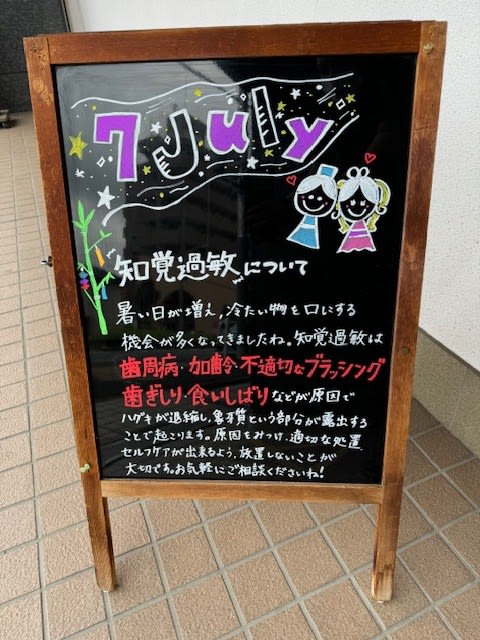 7 July
知覚過敏について
暑い日が増え、冷たい物を口にする
機会が多くなってきましたね。知覚過敏は
歯周病・加齢・不適切なブラッシング
歯ぎしり・食いしばりなどが原因で
ハグキが退縮し、象牙質という部分が露出する
ことで起こります。原因をみつけ、適切な処置
セルフケアが出来るよう、放置しないことが
大切です。お気軽にご相談くださいね!